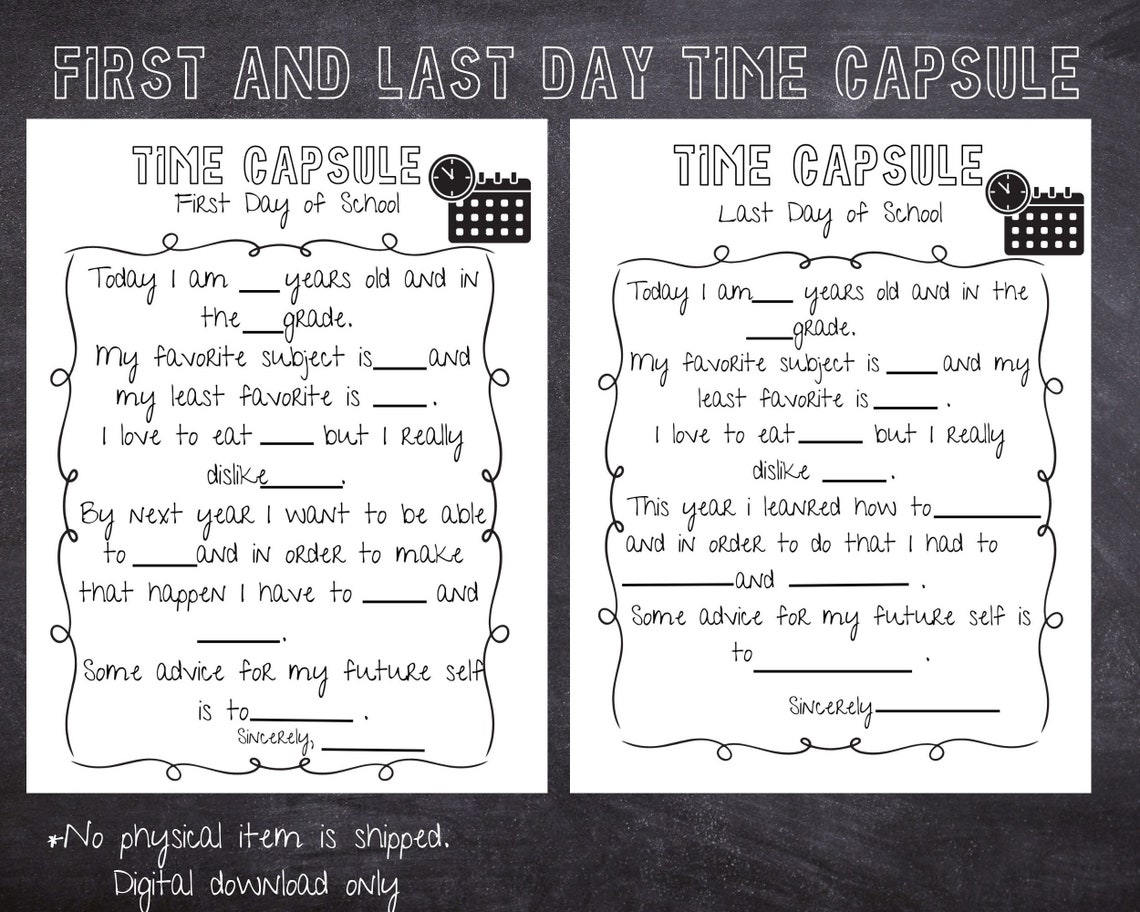 FIRST AND LAST DAY TIME CAPSULE
TIME CAPSULE
First Day of School
Today I am ___ years old and in
the ___ grade.
My favorite subject is ____ and
my least favorite is ____ .
I love to eat ____ but I really
dislike ______.
By next year I want to be able
to _____ and in order to make
that happen I have to _____ and
______.
Some advice for my future self
is to ________ .
Sincerely, ________
TIME CAPSULE
Last Day of School
Today I am ___ years old and in the
___ grade.
My favorite subject is ____ and my
least favorite is _____ .
I love to eat _____ but I really
dislike _____ .
This year i leanred how to ________
and in order to do that I had to
________ and _________ .
Some advice for my future self is
to ____________ .
Sincerely _________
*No physical item is shipped.
Digital download only